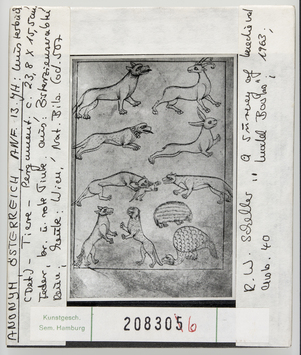 ANONYM, ÖSTERREICH, ANF. 13. JH: Musterbuch
(Det.) – Tiere – Pergament. c. 23,8 x 15,5 cm,
Feder, br. u. rote Tinte aus: Zisterzienserabtei
Rein, heute: Wien, Nat. Bibl. Cod. 507
R. W. Scheller "A Survey of Medieval
Model Books", 1963,
Abb. 40
Kunstgesch.
Sem. Hamburg
208305